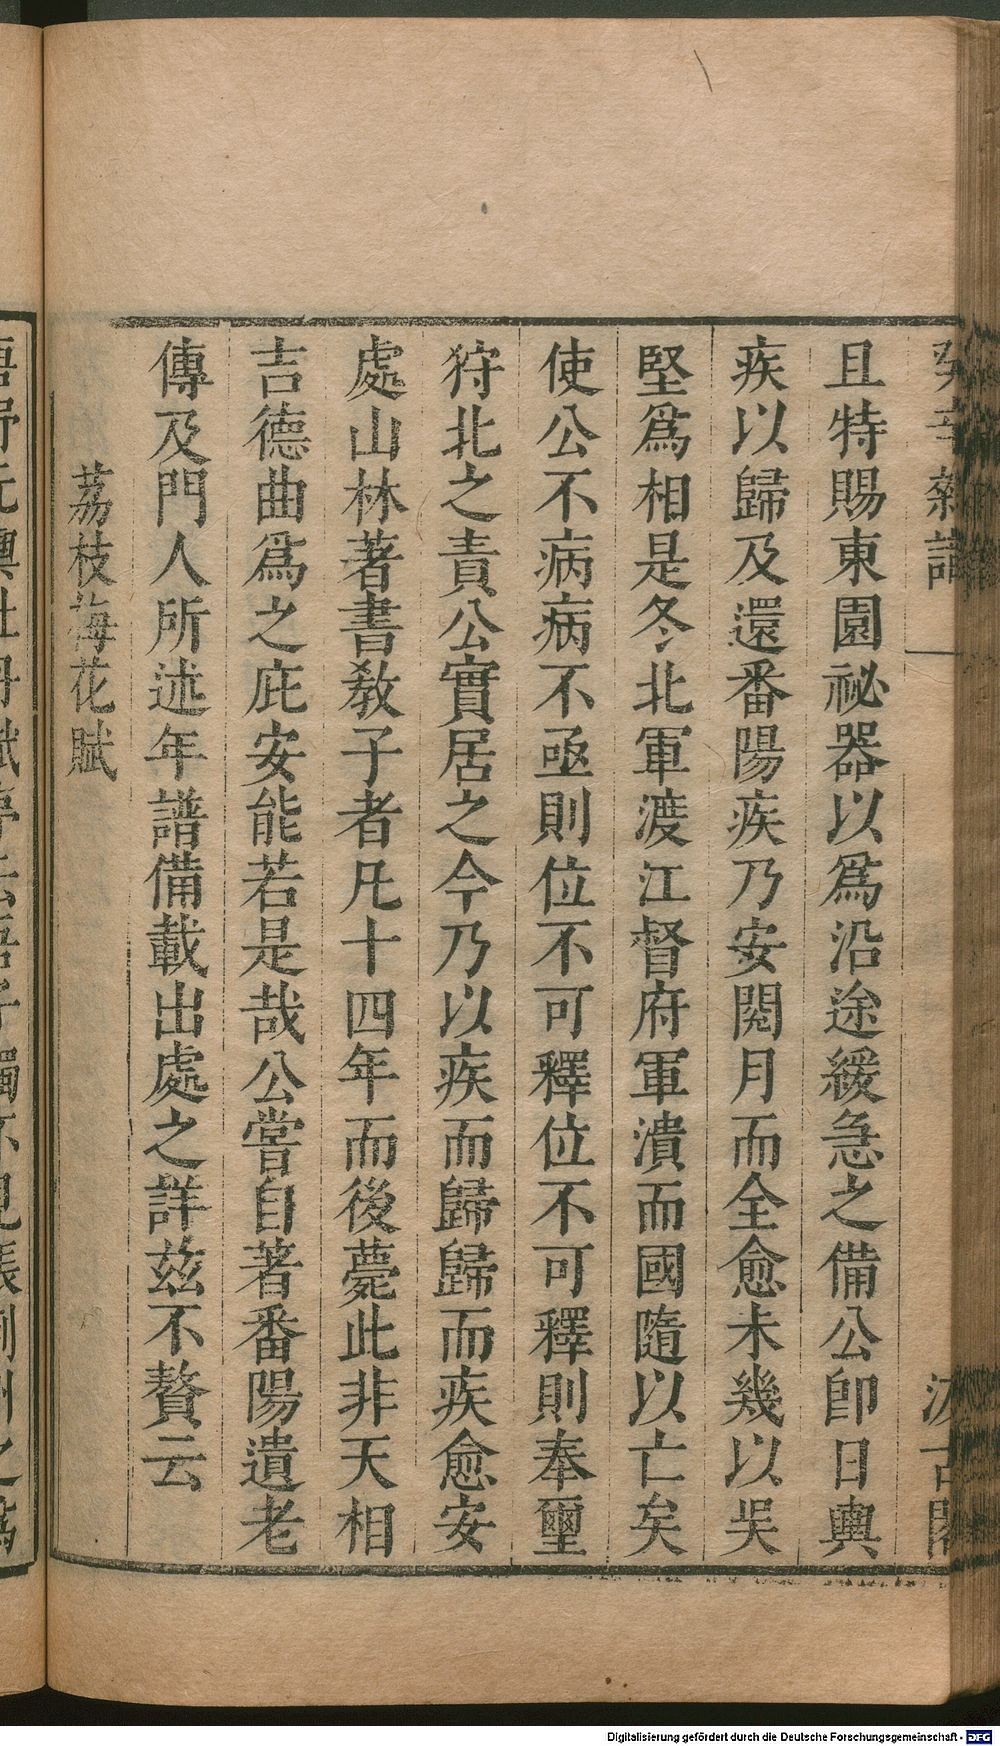 且特賜東園祕器以爲沿途緩急之備公卽日輿
疾以歸及還番陽疾乃安閱月而全愈未幾以吴
堅爲相是冬北軍渡江督府軍潰而國隨以亡矣
使公不病病不亟則位不可釋位不可釋則奉璽
狩北之責公實居之今乃以疾而歸歸而疾愈安
處山林著書敎子者凡十四年而後薨此非天相
吉德曲爲之庇安能若是哉公嘗自著番陽遺老
傳及門人所述年譜備載出處之詳兹不贅云
荔枝梅花賦
Digitalisierung gefördert durch die Deutsche Forschungsgemeinschaft - DFG